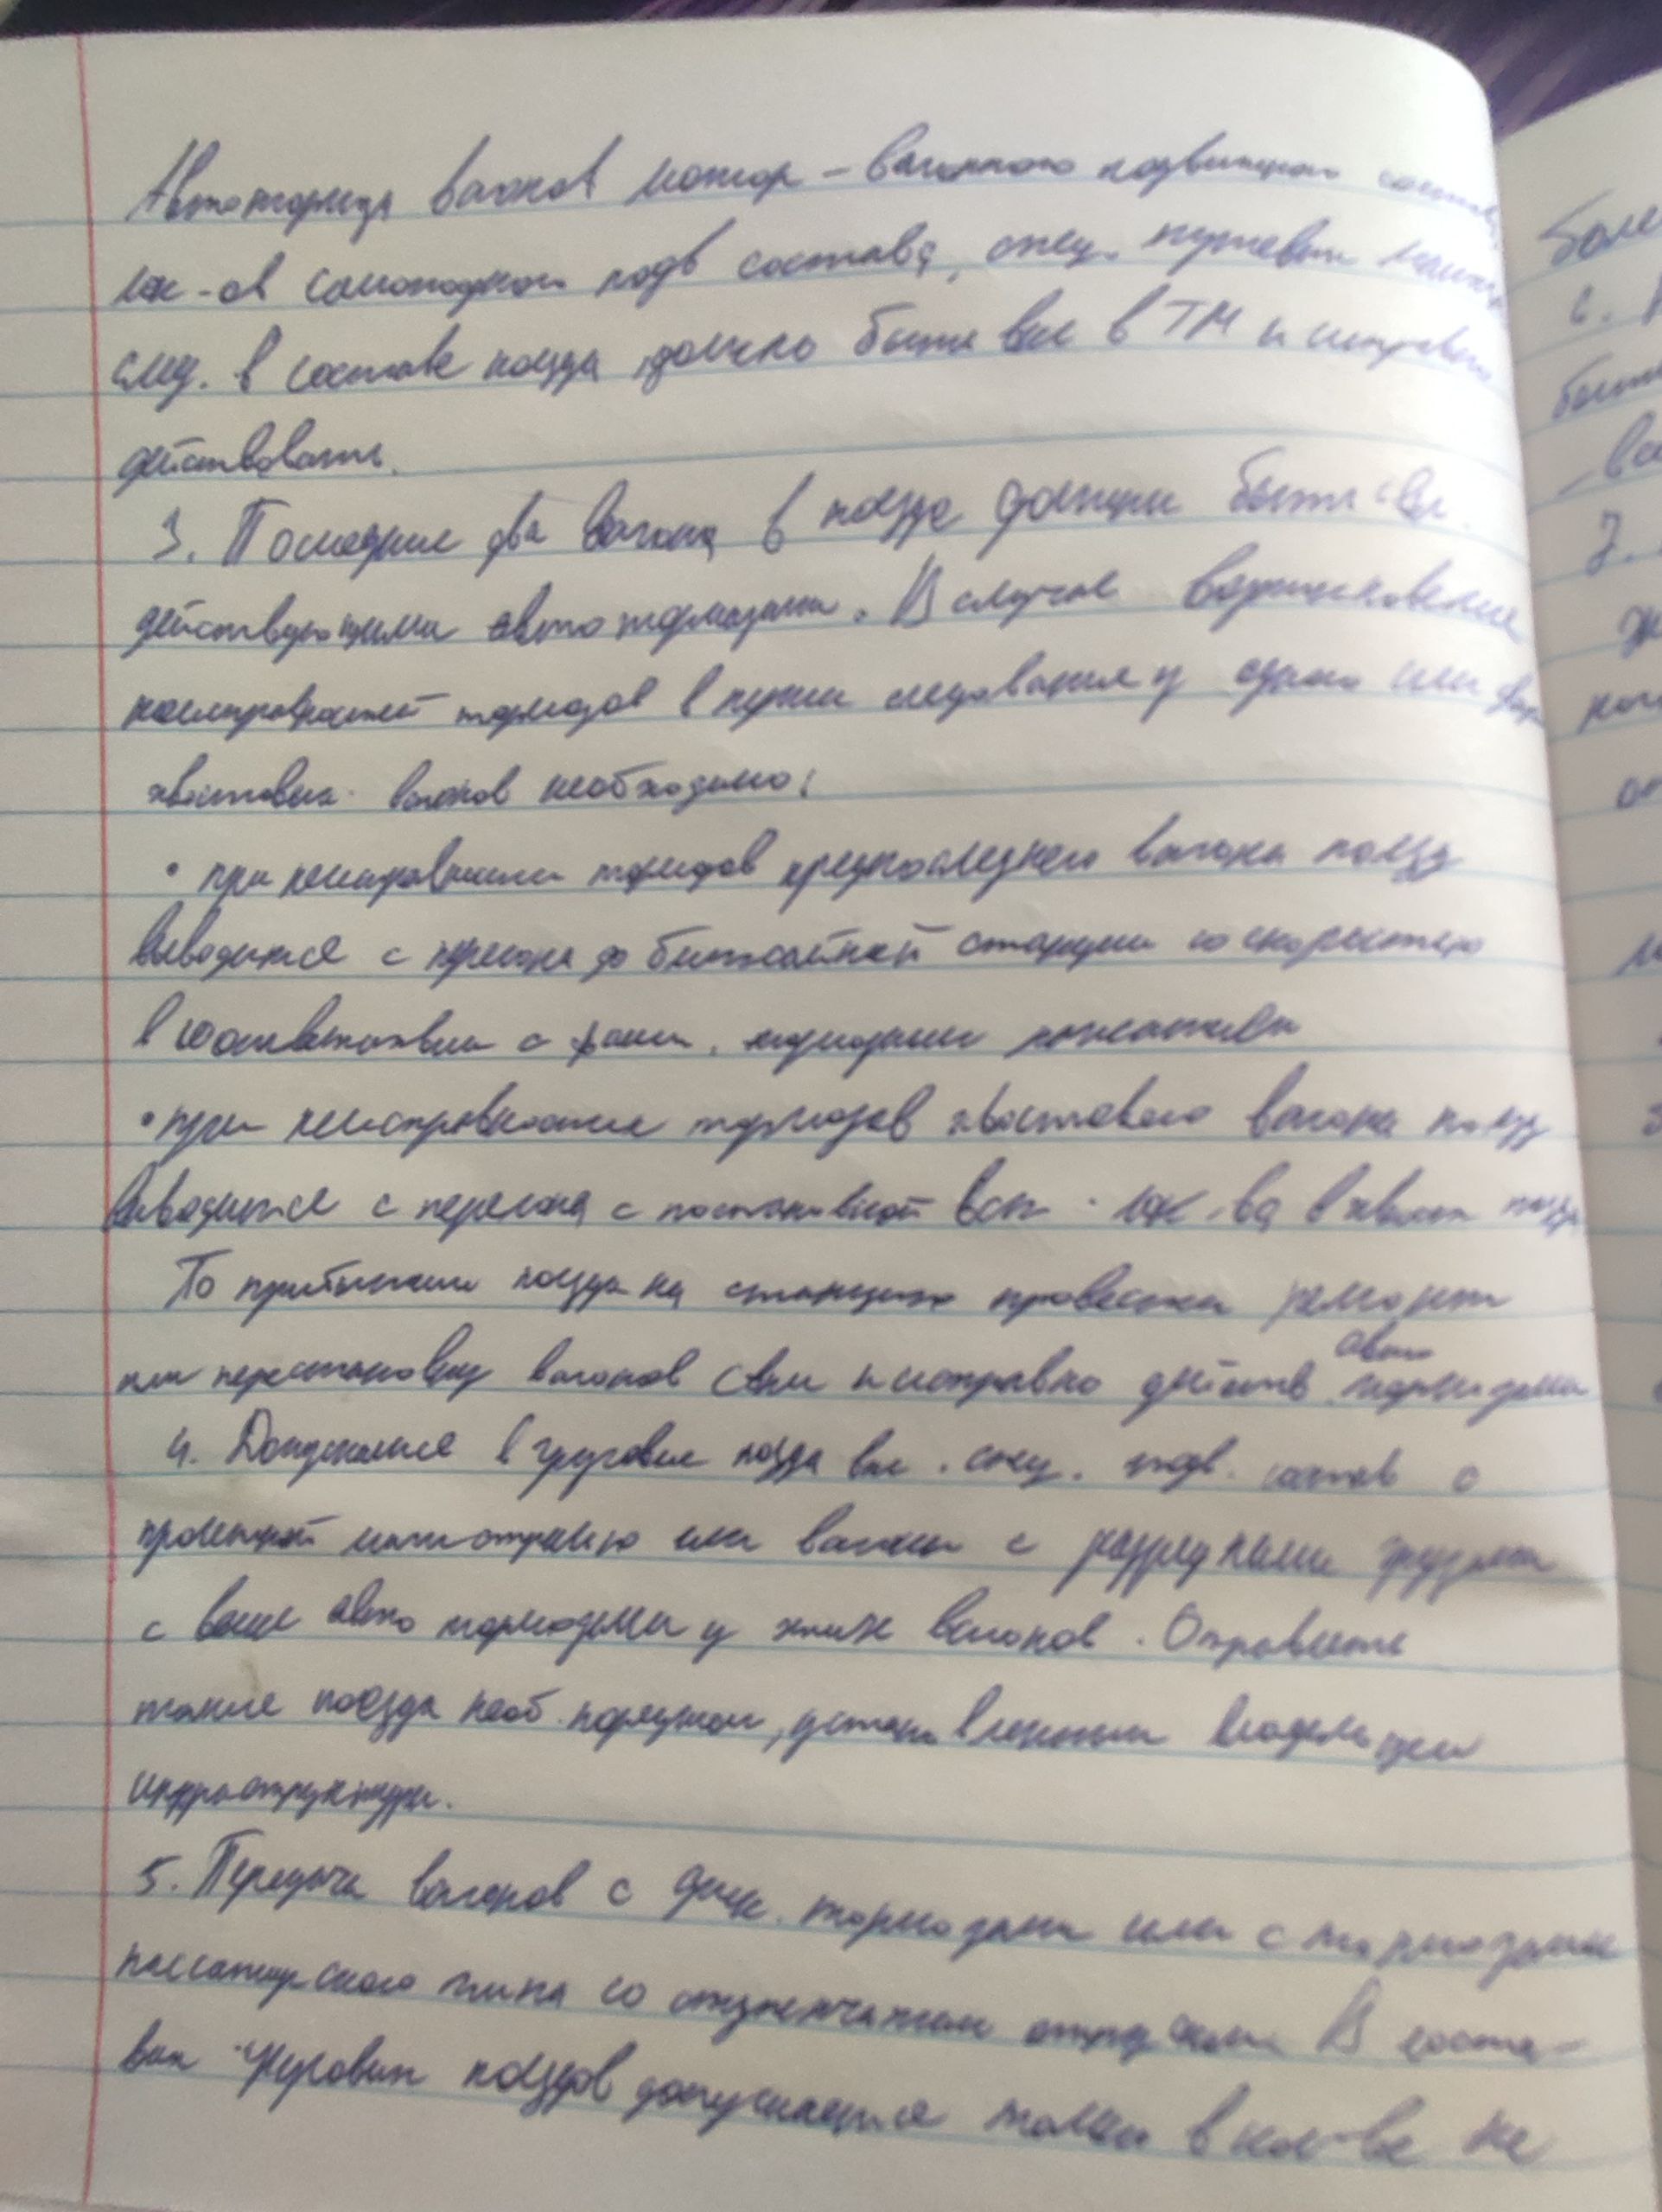 Автотормоза вагонов мотор-вагонного подвижного состава
лок-ов самоходного подв состава, спец. путевых машин
след. в составе поезда должно быть вкл в ТМ и исправно
действовать.
3. Последние два вагона в поезде должны быть с вкл.
действующими автотормозами. В случае возникновения
неисправностей тормозов в пути следования у одного или двух
хвостовых вагонов необходимо:
• при неисправности тормозов предпоследнего вагона поезд
выводится с перегона до ближайшей станции со скоростью
в соответствии с факт. тормозным нажатием
• при неисправности тормозов хвостового вагона поезд
выводится с перегона с постановкой всп. лок-ва в хвост поезда
По прибытии поезда на станцию провести ремонт
или перестановку вагонов с вкл и исправно действ. авто тормозами
4. Допускается в грузовые поезда вкл. спец. подв. состав с
пролетной магистралью или вагоны с разрядными грузами
с выкл авто тормозами у этих вагонов. Отправлять
такие поезда необ. порядком, установленным владельцем
инфраструктуры.
5. Передача вагонов с диск. тормозами или с тормозами
пассажирского типа со ступенчатым отпуском. В соста-
вах грузовых поездов допускается только в кол-ве не
боле
с.
быть